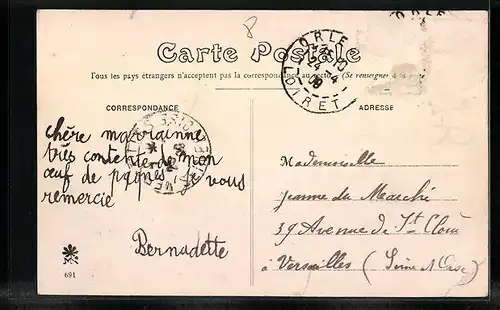 8
ORLE
Carte Postale
Tous les pays étrangers n'acceptent pas la correspondance au recto. (Se renseigner à la
ORLE
24-4
LOIRET
CORRESPONDANCE
ADRESSE
Chère marrainne
très contente de mon
œuf de paques je vous
remercie
Bernadette
Mademoiselle
Jeanne du Marché
39 Avenue de St Cloud
à Versailles (Seine et Oise)
MN
691